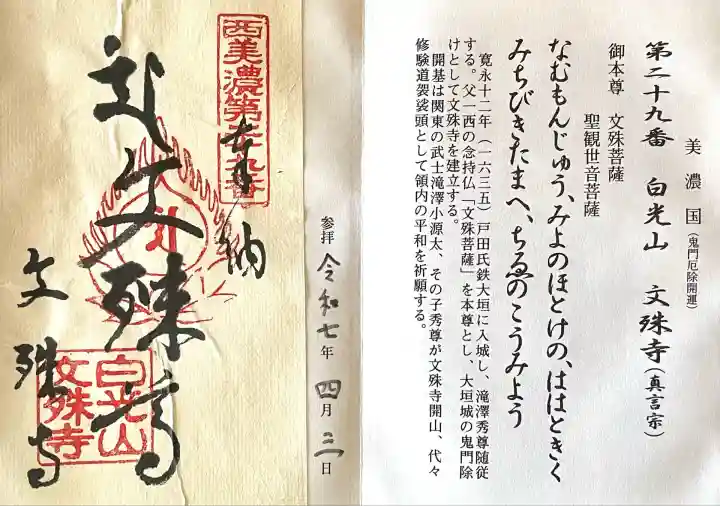 美濃国(鬼門厄除開運)
第二十九番 白光山 文殊寺(真言宗)
御本尊 文殊菩薩
聖観世音菩薩
なむもんじゅう、みよのほとけの、ははときく
みちびきたまへ、ちゑのこうみよう
寛永十二年(一六三五)戸田氏鉄大垣に入城し、滝澤秀尊随従
する。父一西の念持仏「文殊菩薩」を本尊とし、大垣城の鬼門除
けとして文殊寺を建立する。
開基は関東の武士滝澤小源太、その子秀尊が文殊寺開山、代々
修験道袈裟頭として領内の平和を祈願する。
参拝 令和七年 四月 三日
西美濃第廿九番
奉納
文殊尊
文殊寺
白光山
文殊寺